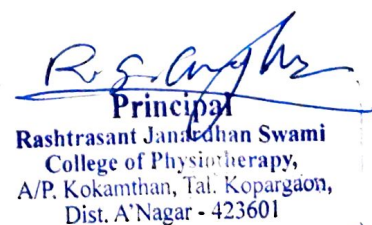 Principal
Rashtrasant Janardhan Swami
College of Physiotherapy,
A/P. Kokamthan, Tal. Kopargaon,
Dist. A'Nagar - 423601